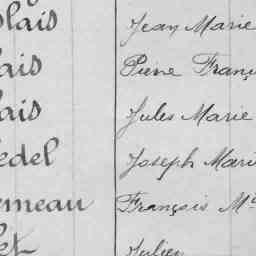 blais Jean Marie
ais Pierre Franç
ais Jules Marie
edel Joseph Mari
meau François M
et Julien